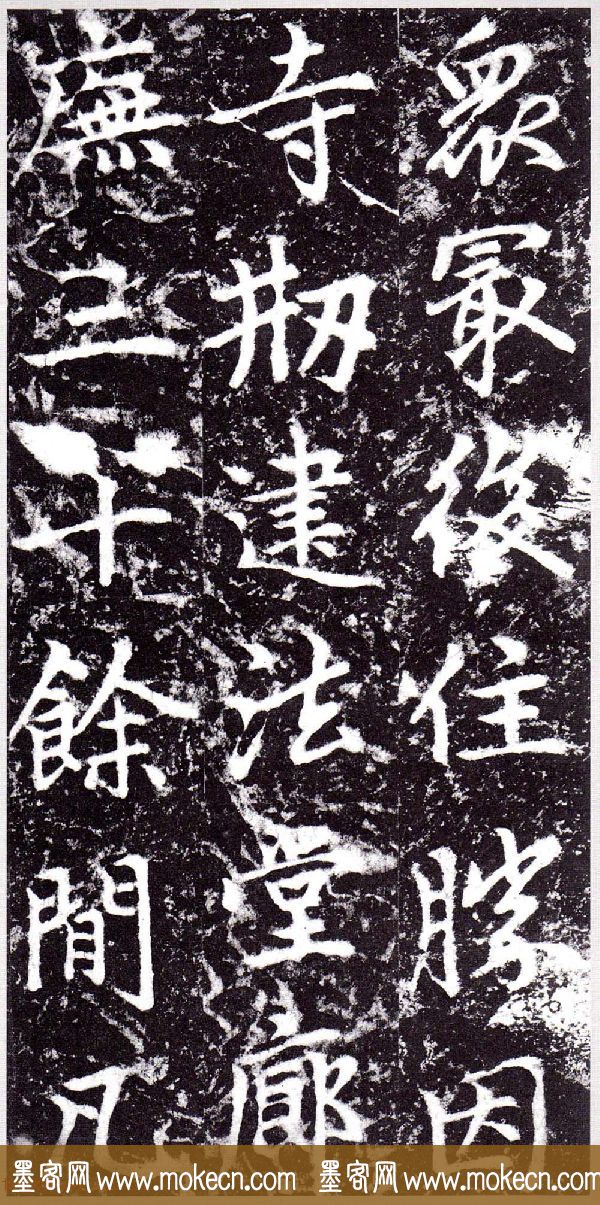 眾最後住勝因
寺剏建法堂廊
廡三十餘閒凡
墨客网 www.mokecn.com 墨客网 www.mokecn.com